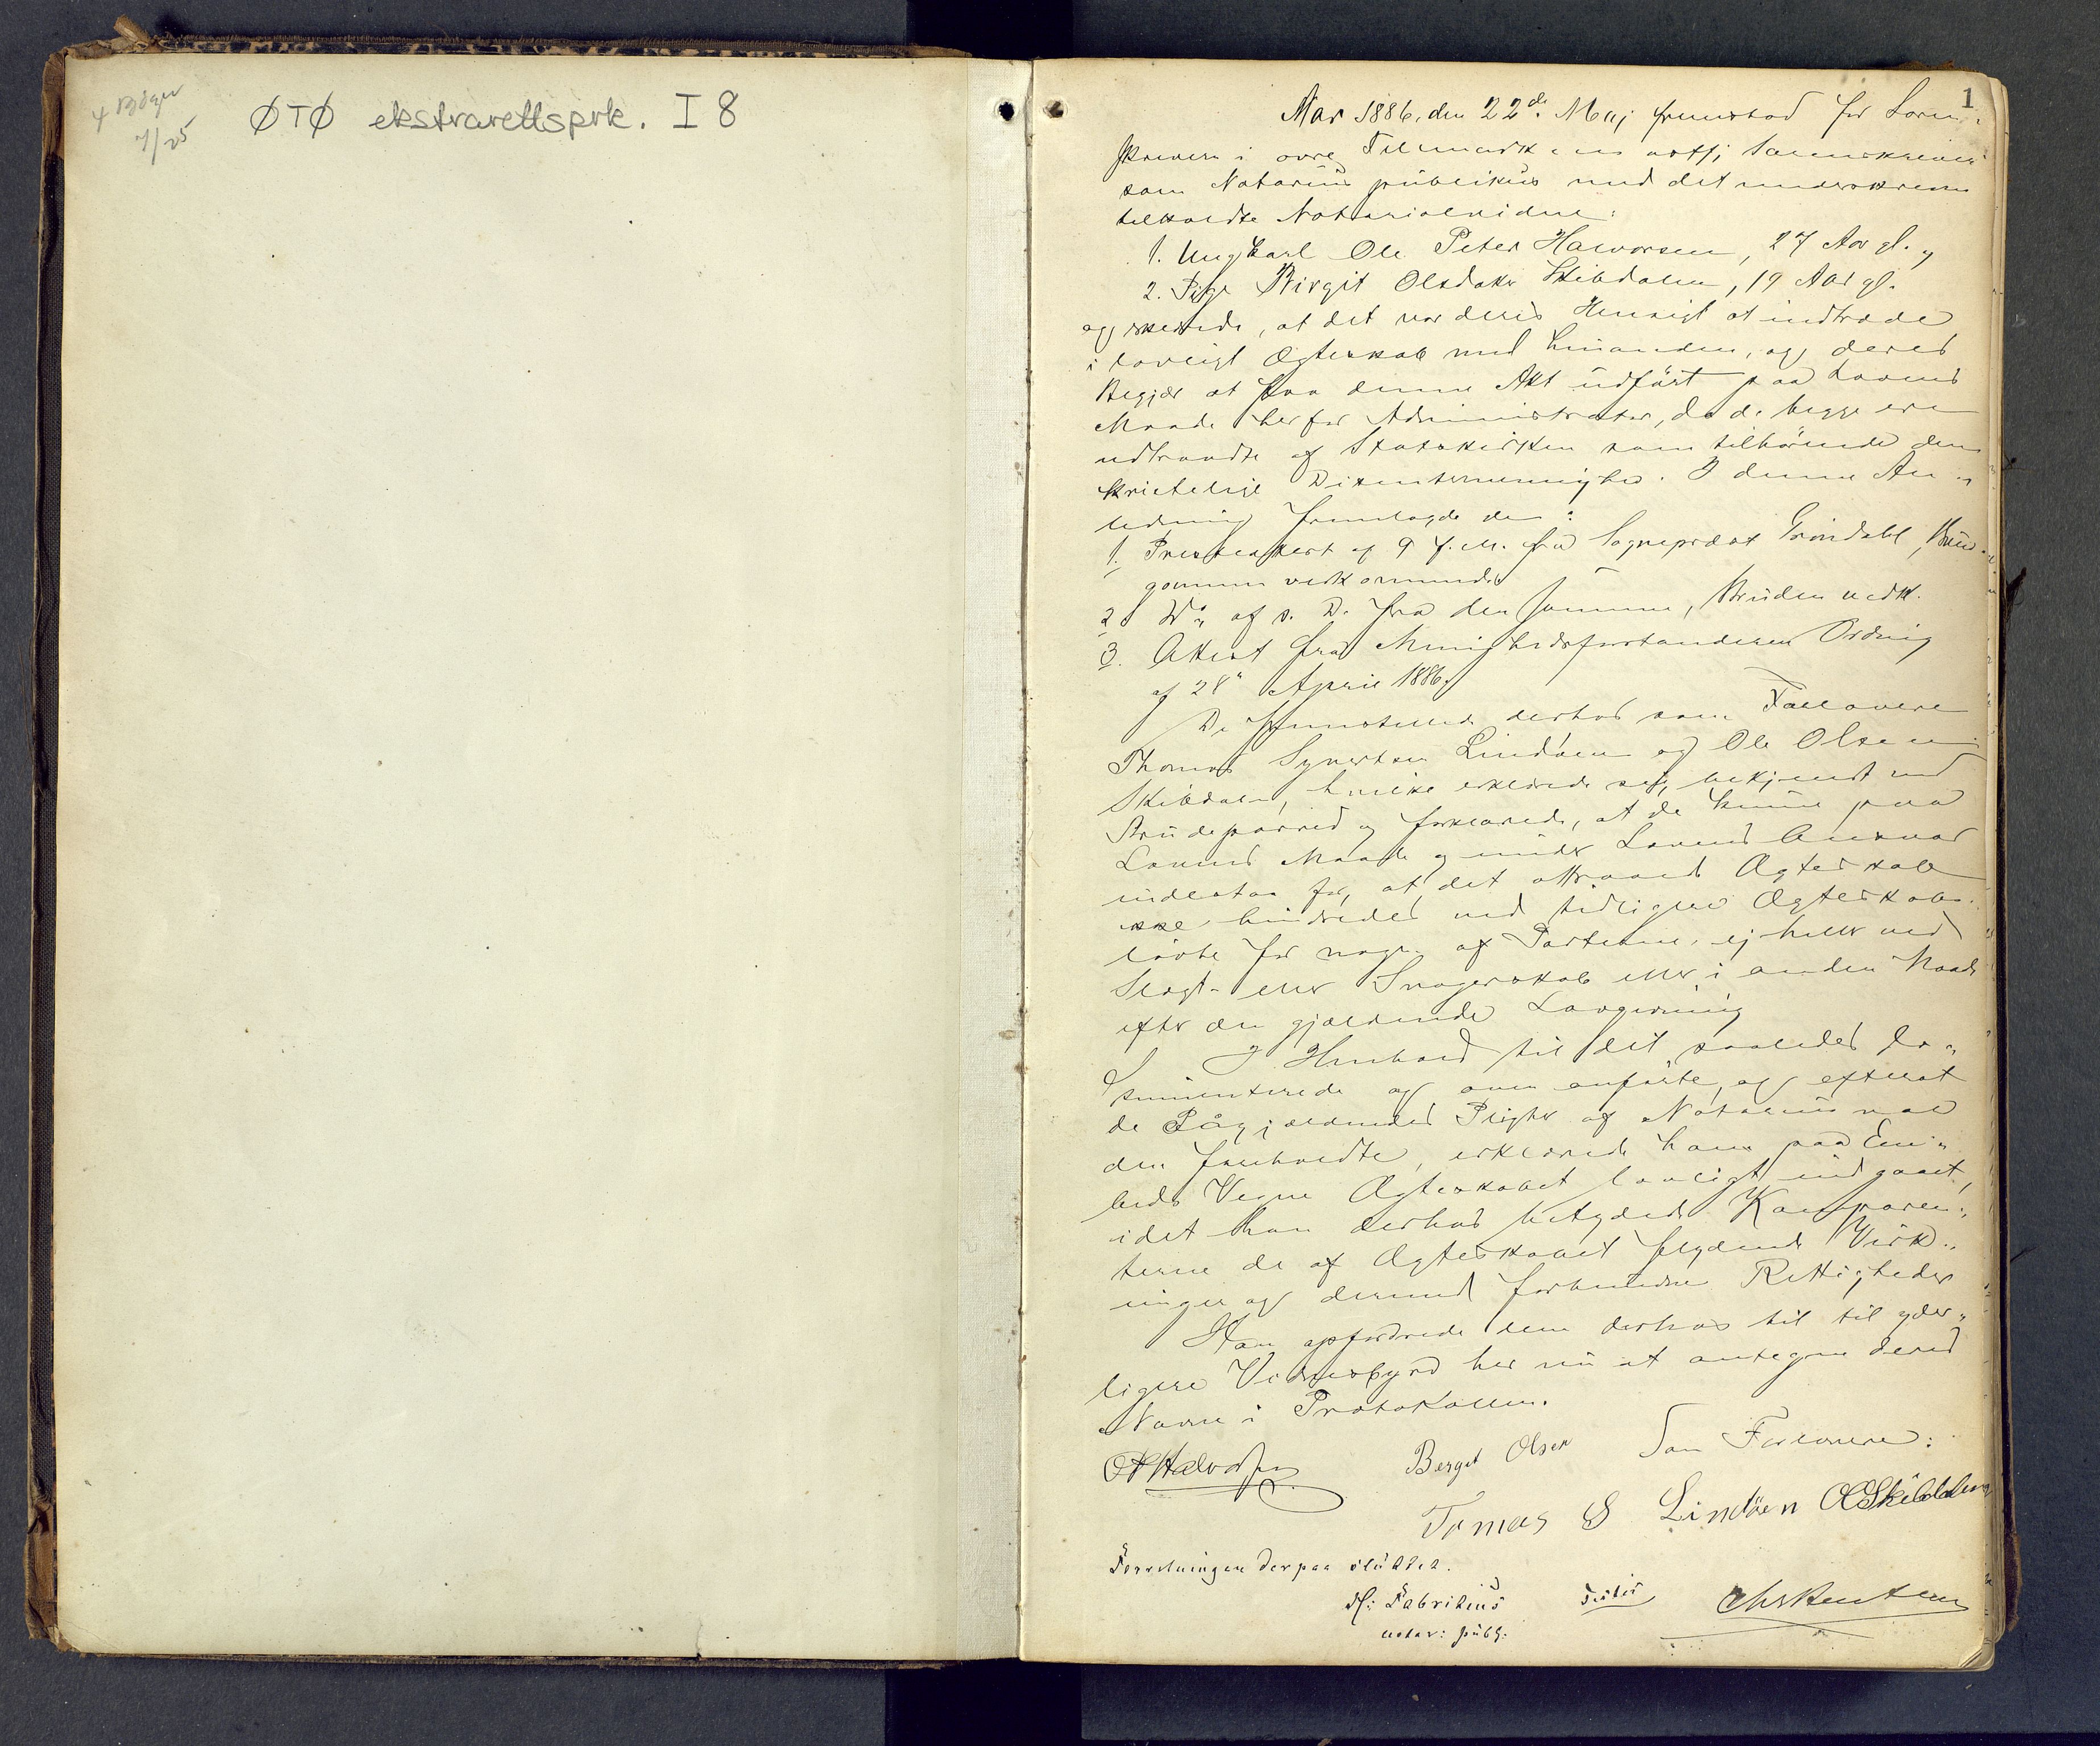 4 Bøger
7/25
ØTØ ekstrarettsprk. I 8
1
Aar 1886, den 22de Maj fremstod for Soren-
skriveren i øvre Telemarkens østfj. Sorenskriveri
som Notarius publikus med det underskrevne
tilkaldte Notarialvidne:
1. Ungkarl Ole Peter Halvorsen, 27 Aar gl. og
2. Pige Birgit Olsdater Skibdalen, 19 Aar gl.
og erklærede, at det var deres Hensigt at indtræde
i lovligt Ægteskab med hinanden, og deres
Begjær at faa denne Akt udført paa Lovens
Maade her for Administrator, da de begge ere
udtraadte af Statskirken som tilhørende den
kristelige Dissentermenighed. I denne An-
ledning fremlagde de:
1. Presteattest af 9 f. M. fra Sogneprest Grøndahl, Brud-
gommen vedkommende
2. Do af s. D. fra den samme, Bruden vedk.
3. Attest fra Menighedsforstanderen Ording
af 28de April 1886.
De fremstillede derhos som Forlovere
Thomas Syvertsen Lindøen og Ole Olsen
Skibdalen, hvilke erklærede sig bekjendt med
Brudeparred og forklarede, at de kunne paa
Lovens Maade og under Lovens Ansvar
indestaa for, at det attraaede Ægteskab
ikke hindredes ved tidligere Ægteskabs-
løvte for nogen af Parterne, ej heller ved
Slegt- eller Svogerskab eller i anden Maade
efter den gjældende Lovgivning
I Henhold til det saaledes do-
kumenterede og oven anførte, og efterat
de Pågjældendes Pligter af Notarius var
dem foreholdte, erklærede han paa Em-
beds Vegne Ægteskabet lovligt indgaaet,
idet han derhos betydede Komparen-
terne de af Ægteskabet flydende Virk-
ninger og dermed forbundne Rettigheder
Han opfordrede dem derhos til til yder-
ligere Vidnesbyrd her nu at antegne deres
Navne i Protokollen.
O P Halvorsen Berget Olsen Som Forlovere:
Tomas S Lindöen O O Skibdalen
Forretningen derpaa sluttet.
H: Fabritius Testis
notar: publ: